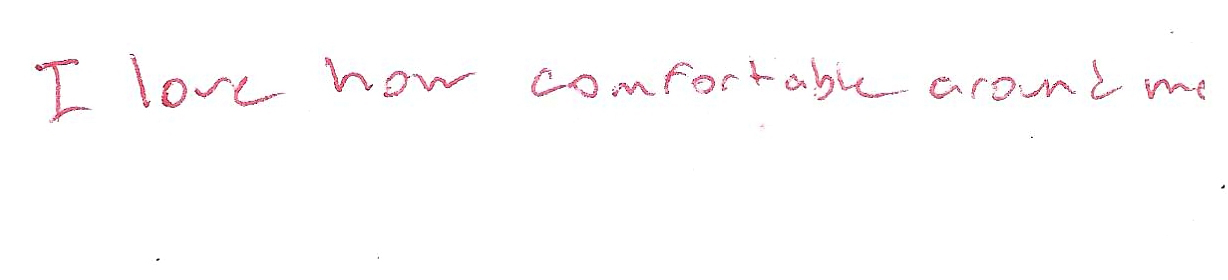 I love how comfortable around me